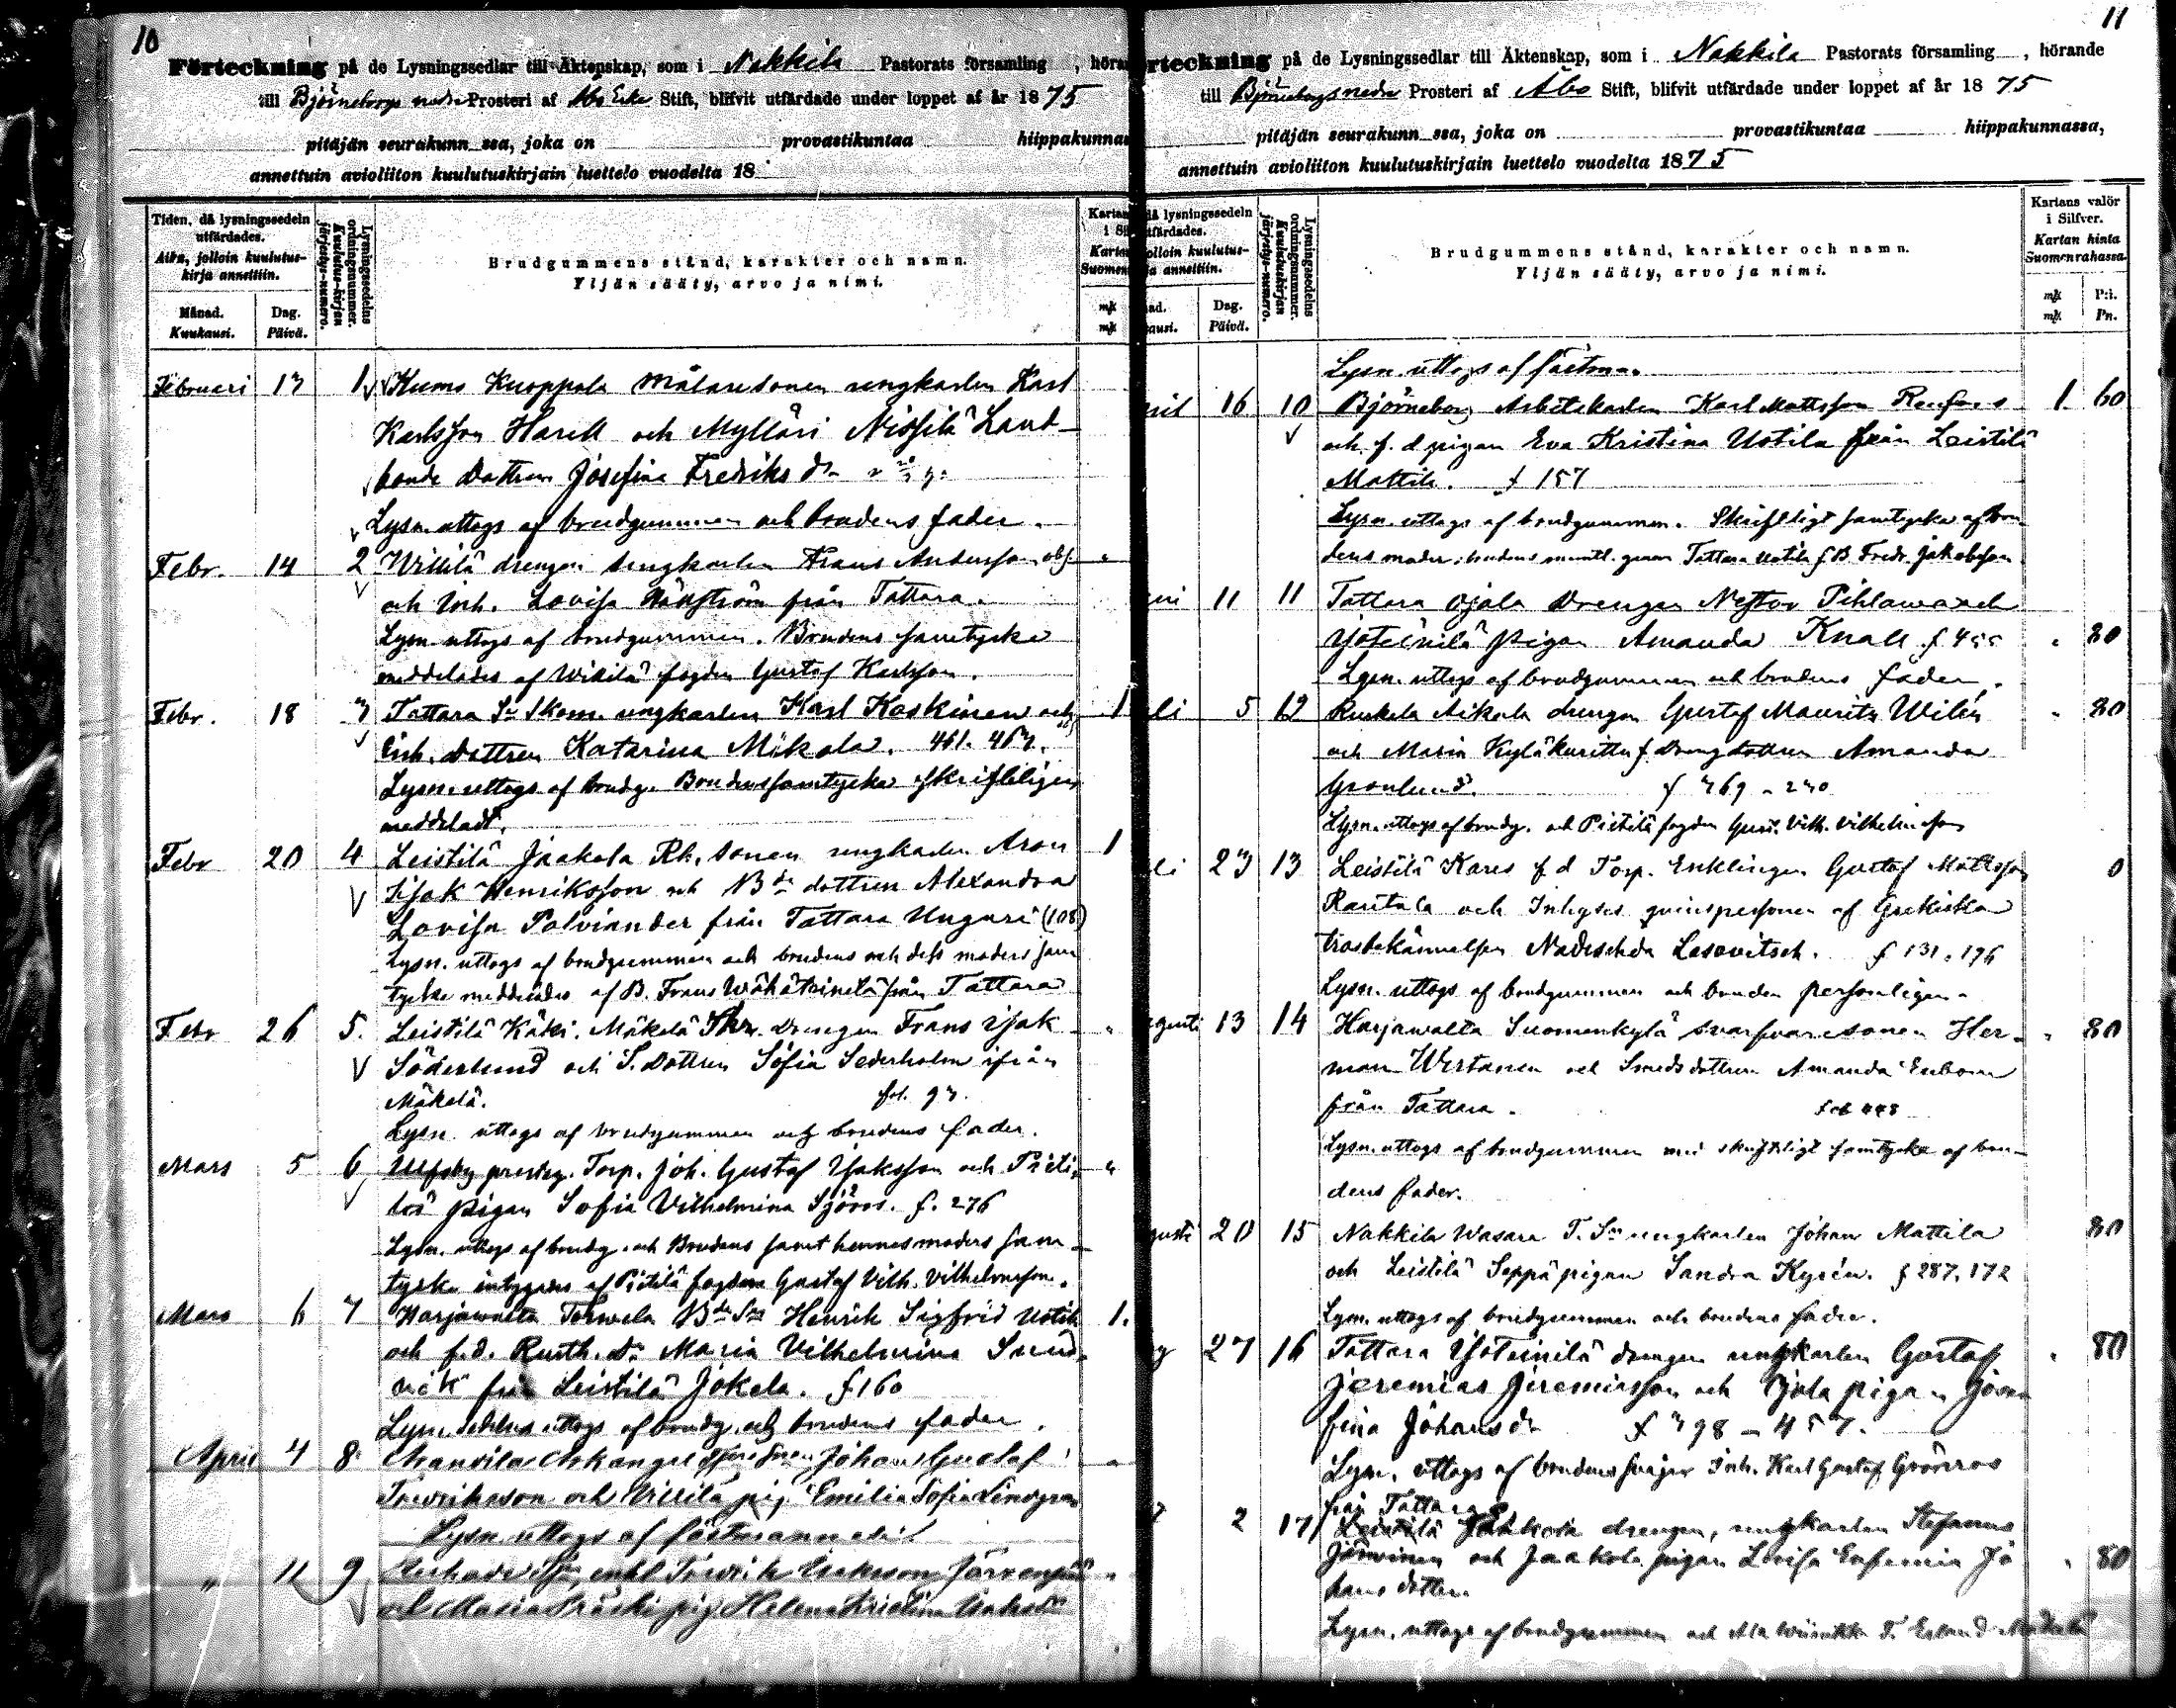 10
Förteckning på de Lysningssedlar till Äktenskap, som i Nakkila Pastorats församling , höra
till Björneborgs nedre Prosteri af Åbo Erke Stift, blifvit utfärdade under loppet af år 1875
pitäjän seurakunn ssa, joka on provastikuntaa hiippakunnas
annettuin avioliiton kuulutuskirjain luettelo vuodelta 18
Tiden, då lysningssedeln utfärdades.
Aika, jolloin kuulutus-kirja annettiin.
Månad. Kuukausi.
Dag. Päivä.
Lysningssedelns ordningsnummer. Kuulutus-kirjan järjestys-numero.
Brudgummens stånd, karakter och namn.
Yljän sääty, arvo ja nimi.
Februari 13 1 Kumo Kuoppala Målaresonen ungkarlen Karl
Karlsson Harell och Mylläri Nissilä Land-
bonde Dottren Josefina Fredriks dr
Lysn. uttogs af brudgummen och brudens fader.
Febr. 14 2 Willilä drengen ungkarlen Frans Andersson
och Inh. Lovisa från Tattara.
Lysn. uttogs af brudgummen. Brudens samtycke
meddelades af Wikilä fogden Gustaf Karlsson.
Febr. 18 3 Tattara Sn Skom. ungkarlen Karl Koskinen och 1
Inh. dottren Katarina Mikola. 461. 463.
Lysn. uttogs af brudg. Brudens samtycke skriftligen
meddeladt.
Febr 20 4 Leistilä Jaakola Rh. sonen ungkarlen Aron 1
Isak Henriksson och Bde dottren Alexandra
Lovisa Polviander från Tattara Ungari (108)
Lysn. uttogs af brudgummen och brudens och dess moders sam
tycke meddelades af B. Frans från Tattara
Febr 26 5. Leistilä Käki. Mäkelä drengen Frans Isak
Söderlund och S. Dottren Sofia Sederholm ifrån
Mäkelä. fol. 93.
Lysn. uttogs af brudgummen och brudens fader.
Mars 5 6 Ulfsby prestg. Torp. Joh. Gustaf Isaksson och Pisti-
lä pigan Sofia Vilhelmina Sjöros. f. 276
Lysn. uttogs af brudg. och Brudens samt hennes moders sam-
tycke intygades af Pistilä fogden Gustaf Vilh. Vilhelmsson.
Mars 6 7 Harjawalta Torwela Bde Sn Henrik Sigfrid Ustila 1.
och f.d. Rusth. dr Maria Vilhelmina
från Leistilä Jokela. f. 160
Lysn. sedeln uttogs af brudg. och brudens fader.
April 4 8. Anavila Arkangel Johan Gustaf
Fredriksson och Villilä pig. Emilia Sofia Lindgren
Lysn. uttogs af fästmannen
" 11 9 enkl. Fredrik Järvenpää
och Masia pig. Helena Kristina
11
rteckning på de Lysningssedlar till Äktenskap, som i Nakkila Pastorats församling , hörande
till Björneborgs nedre Prosteri af Åbo Stift, blifvit utfärdade under loppet af år 1875
pitäjän seurakunn ssa, joka on provastikuntaa hiippakunnassa,
annettuin avioliiton kuulutuskirjain luettelo vuodelta 1875
Dag. Päivä.
Lysningssedelns ordningsnummer. Kuulutuskirjan järjestys-numero.
Brudgummens stånd, karakter och namn.
Yljän sääty, arvo ja nimi.
Kartans valör i Silfver.
Kartan hinta Suomen rahassa
mk P:i.
mk Pn.
Lysn. uttogs af fästman.
ril 16 10 Björneborg Arbetskarlen Karl Mattsson Renfors 1. 60
och f.d pigan Eva Kristina Ustila från Leistilä
Mattila. f 157
Lysn. uttogs af brudgummen. Skriftligt samtycke af bru
dens moder, brudens muntl. genom Tattara Ustila f B. Fredr. Jakobsson.
ni 11 11 Tattara Ojala Drengen Nestor Pihlawa och
Isoteinilä pigan Amanda Knall f 455 80
Lysn. uttogs af brudgummen och brudens fader.
li 5 12 Ruskela Nikola drengen Gustaf Mauritz Wilén 80
och Masia Kyläkurittu f Drengdottren Amanda
Grönlund. f 369 - 230
Lysn. uttogs af brudg. och Pistilä fogden Gust. Vilh. Vilhelmsson
li 23 13 Leistilä Kares f d Torp. Enklingen Gustaf Mattsson 0
Rantala och Inhyses qvinspersonen af Grekiska
trosbekännelsen Nadeschda Lasovitsch. f 131. 176
Lysn. uttogs af brudgummen och bruden personligen.
gusti 13 14 Harjawalta Suomenkylä svarfvaresonen Her- 80
man Wirtanen och Smeds dottren Amanda Enbom
från Tattara. fol 448
Lysn. uttogs af brudgummen med skriftligt samtycke af bru-
dens fader.
gusti 20 15 Nakkila Wasara T. Sn ungkarlen Johan Mattila 80
och Leistilä Seppä pigan Sandra Kyrén. f 287. 172
Lysn. uttogs af brudgummen och brudens fader.
g 27 16 Tattara Isoteinilä drengen ungkarlen Gustaf 80
Jeremias Jeremiasson och Ojala pigan Jose-
fina Johans dr f 398 - 457.
Lysn. uttogs af brudens svåger Inh. Karl Gustaf Grönroos
från Tattara
2 17 Leistilä Jaakola drengen, ungkarlen Stefanus
Järvinen och Jaakola pigan Lovisa Eufemia Jo 80
hans dotter.
Lysn. uttogs af brudgummen och Ala T.